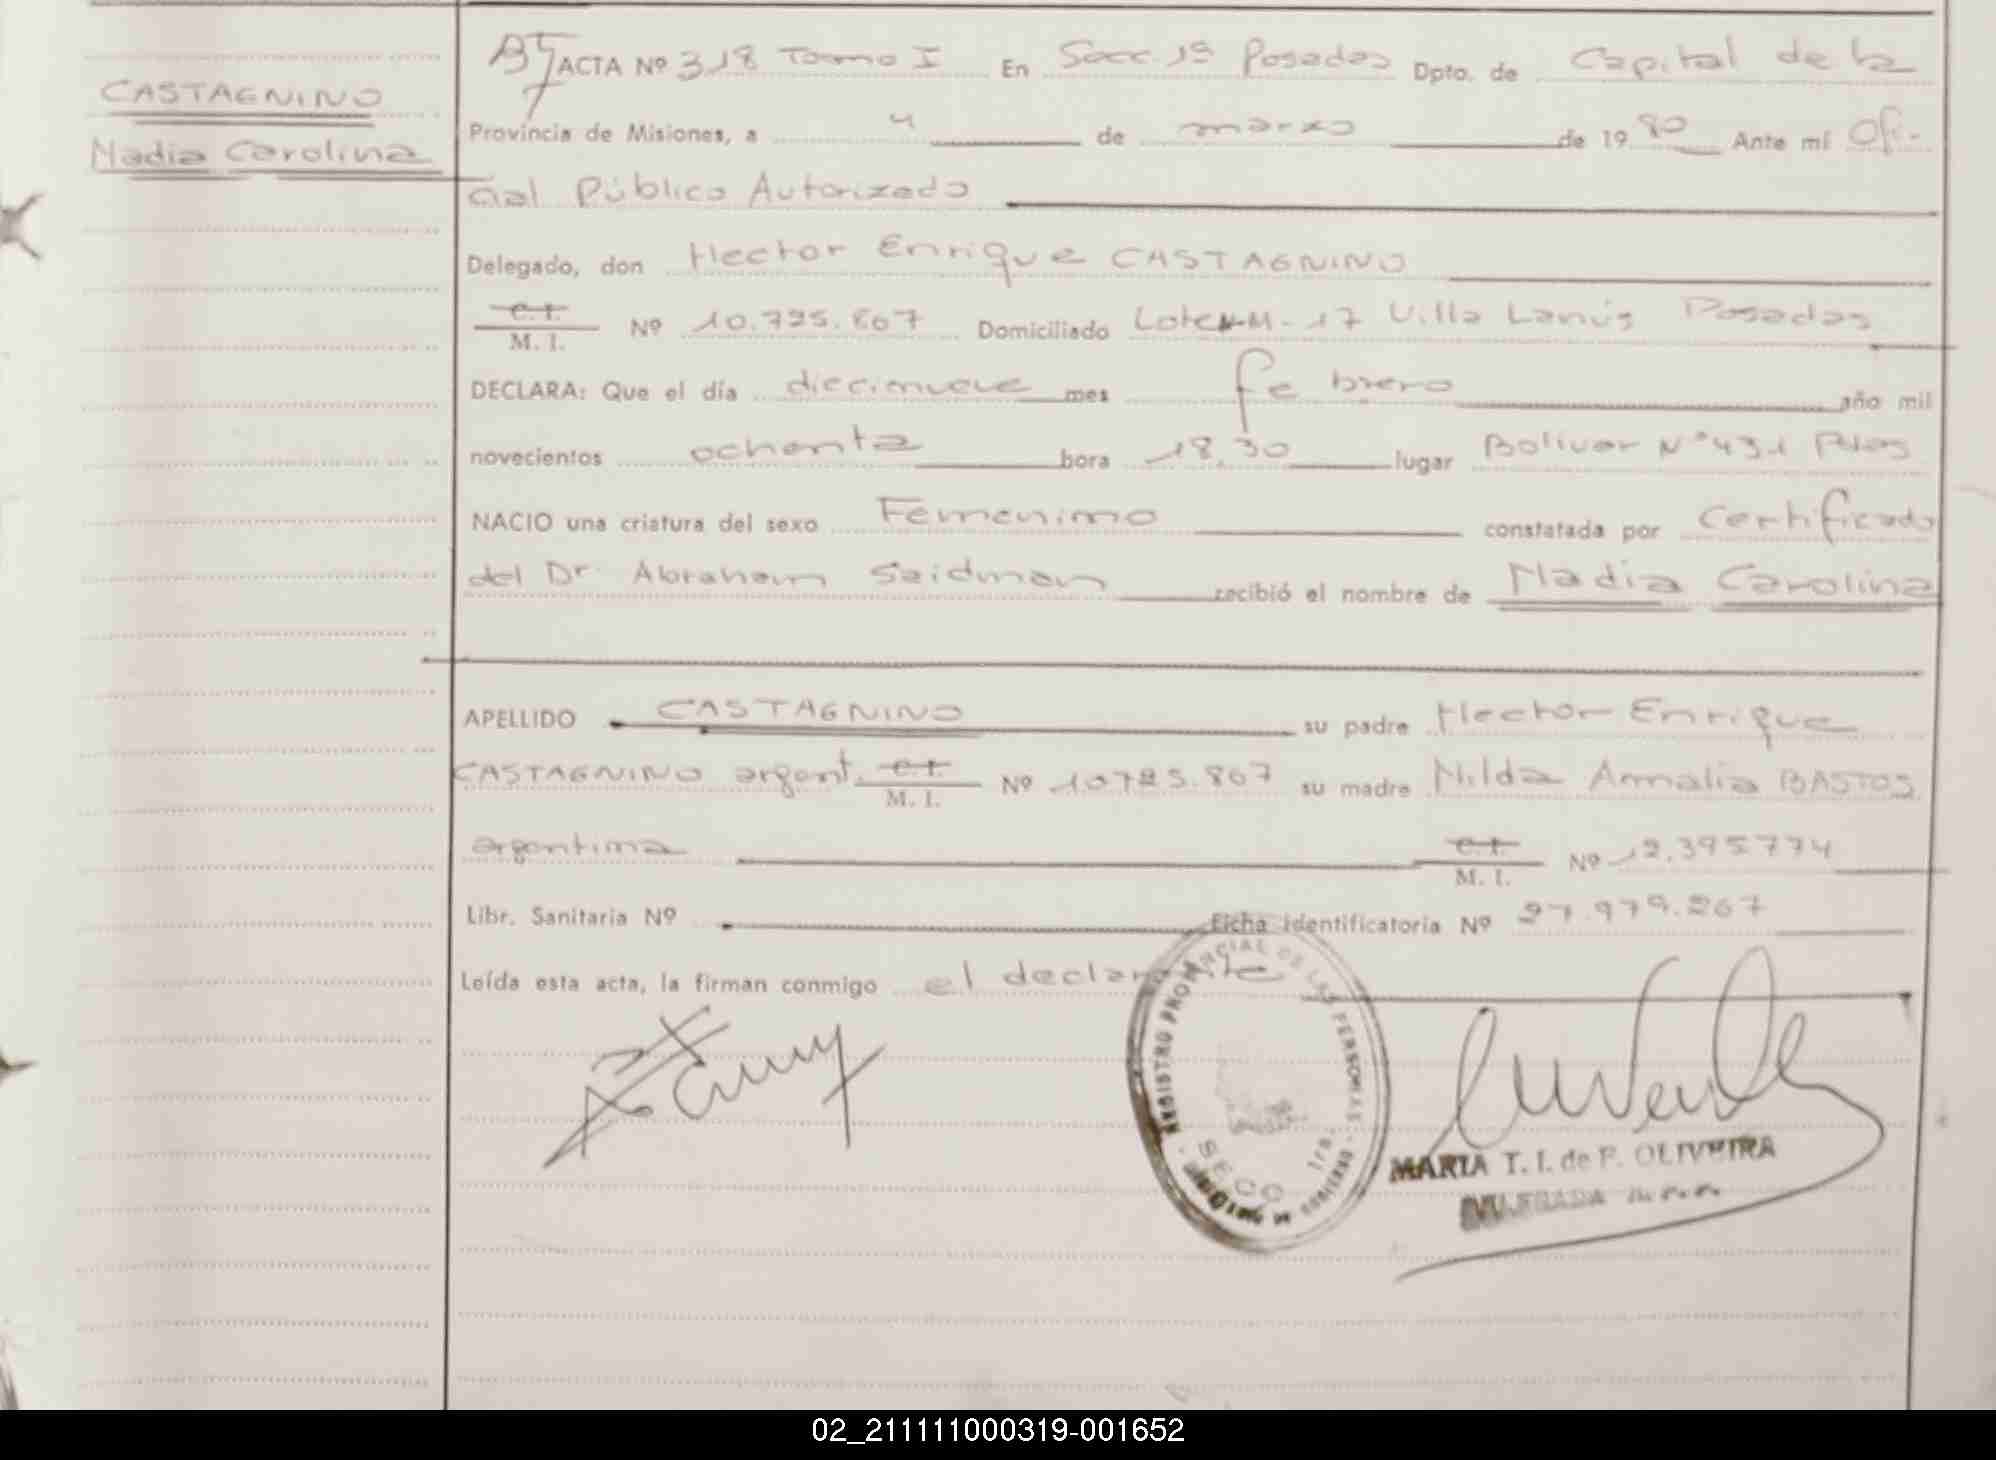 CASTAGNINO
Nadia Carolina
ACTA Nº 318 Tomo I En Secc. 1ª Posadas Dpto. de Capital de la
Provincia de Misiones, a 4 de marzo de 1980 Ante mí Ofi-
cial Público Autorizado
Delegado, don Hector Enrique CASTAGNINO
C.I. M. I. Nº 10.725.867 Domiciliado Lote M-17 Villa Lanús Posadas
DECLARA: Que el día diecinueve mes febrero año mil
novecientos ochenta hora 18,30 lugar Bolivar Nº 431 Pdas
NACIO una criatura del sexo Femenino constatada por Certificado
del Dr. Abraham Saidman recibió el nombre de Nadia Carolina
APELLIDO CASTAGNINO su padre Hector Enrique
CASTAGNINO argent. C.I. M. I. Nº 10725.867 su madre Nilda Amalia BASTOS
argentina C.I. M. I. Nº 12.395774
Libr. Sanitaria Nº Ficha Identificatoria Nº 27.979.267
Leída esta acta, la firman conmigo el declarante
REGISTRO PROVINCIAL DE LAS PERSONAS
SECC 1ra.
MARIA T. I. de F. OLIVEIRA
DELEGADA
02_211111000319-001652